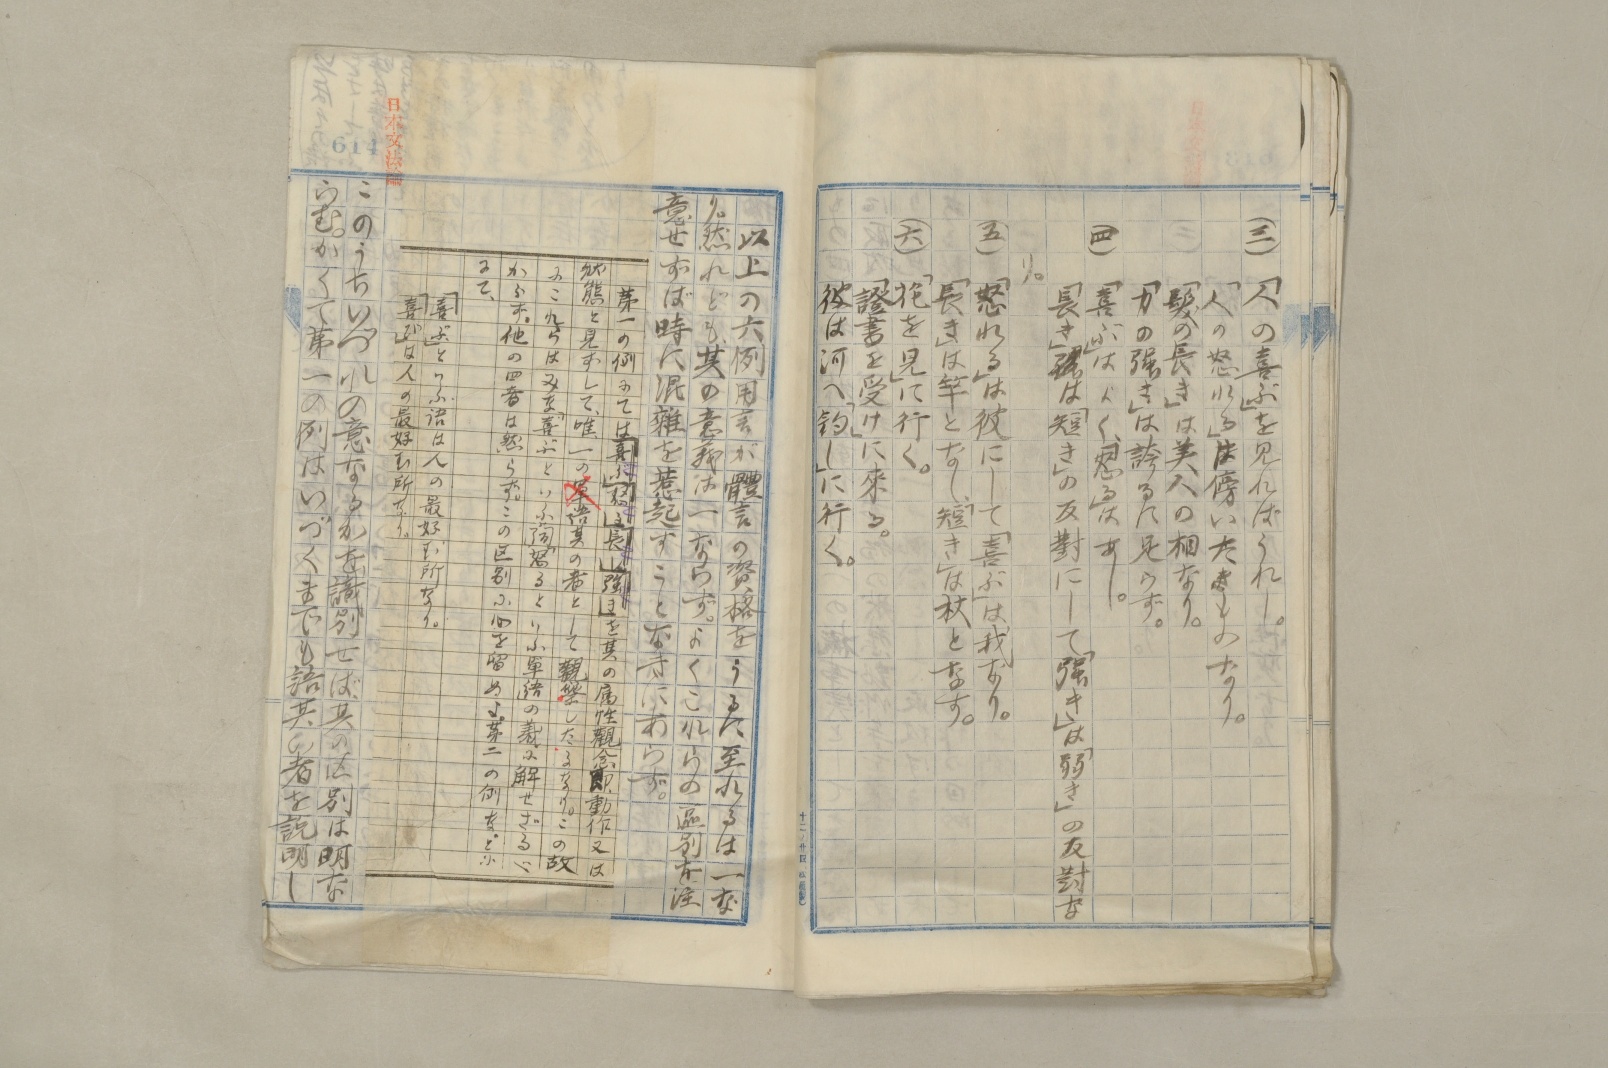 (三)「人の喜ぶ」を見ればうれし。
「人の怒れる」は傍いたきものなり。
「髪の長き」は美人の相なり。
「力の強き」は誇るに足らず。
(四)「喜ぶ」はよく、「怒る」はあし。
「長き」は「短き」の反對にして「强き」は「弱き」の反對な
り。
(五)「怒れる」は彼にして「喜ぶ」は我なり。
「長き」は竿となし、「短き」は杖となす。
(六)「花を見」に行く。
「證書を受け」に來る。
彼は河へ「釣し」に行く。
十二ノ廿四
日本文法論
614
以上の六例用言が體言の資格をうるに至れるは一な
り。然れども、其の意義は一ならず。よくこれらの區別を注
意せずば時に混雜を惹起すことなきにあらず。
第一の例にては「喜ぶ」「怒る」「長し」「强き」を其の属性觀念即動作又は
狀態と見ずして、唯一の單語其の者として觀察したるなり。この故
にこれらはみな「喜ぶ」といふ詞「怒る」といふ單語の義に解せざるべ
からず。他の四者は然らず。この区別に心を留めよ。第二の例など
にて、
「喜ぶ」といふ語は人の最好む所なり。
「喜び」は人の最好む所なり。
このうちいづれの意なるかを識別せば其の区別は明な
らむ。かくて第一の例はいづくまでも語其の者を說明し